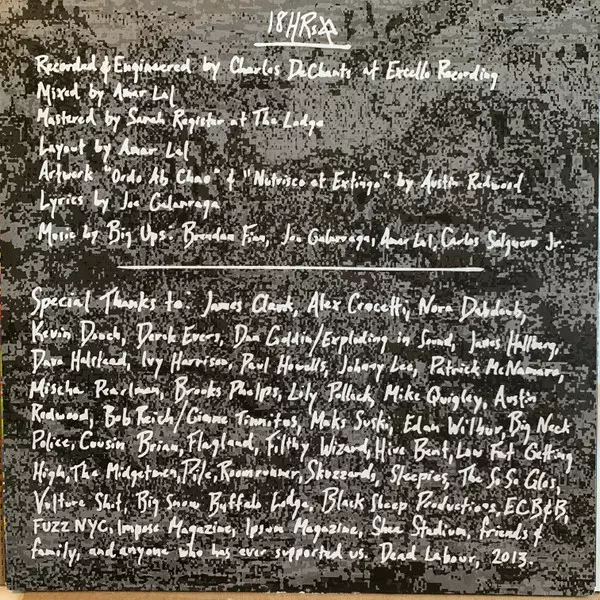 18HRs
Recorded & Engineered by Charles DeChants at Excello Recording
Mixed by Amar Lal
Mastered by Sarah Register at The Lodge
Layout by Amar Lal
Artwork "Ordo Ab Chao" & "Nutrisco et Extingo" by Austin Redwood
Lyrics by Joe Galarraga
Music by Big Ups: Brendan Finn, Joe Galarraga, Amar Lal, Carlos Salguero Jr.
Special Thanks to: James Clark, Alex Crocetti, Nora Dabdoub,
Kevin Douch, Derek Evers, Dan Goldin/Exploding in Sound, James Hallberg,
Dava Halstead, Ivy Harrison, Paul Howells, Johnny Lee, Patrick McNamara,
Mischa Pearlman, Brooks Phelps, Lily Pollack, Mike Quigley, Austin
Redwood, Bob Reich/Gimme Tinnitus, Maks Suski, Edan Wilbur, Big Neck
Police, Cousin Brian, Flagland, Filthy Wizard, Hive Bent, Low Fat Getting
High, The Midgetmen, Pile, Roomrunner, Skuzzards, Sleepies, The So So Glos,
Vulture Shit, Big Snow Buffalo Lodge, Black Sheep Productions, ECB&B,
FUZZ NYC, Impose Magazine, Ipsum Magazine, Shea Stadium, friends &
family, and anyone who has ever supported us. Dead Labour, 2013.